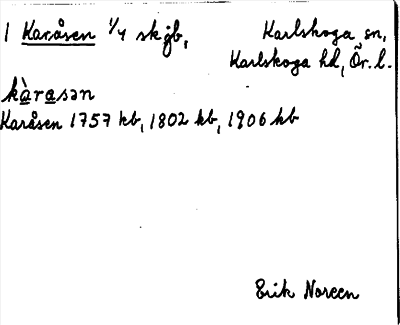 1 Karåsen 1/4 skjb, Karlskoga sn,
Karlskoga hd, Ör. l.
kàrasən
Karåsen 1757 kb, 1802 kb, 1906 kb
Erik Noreen